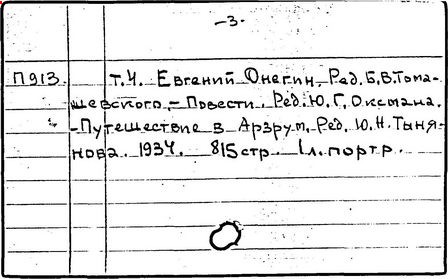 -3-
П913. т.4. Евгений Онегин. Ред. Б.В.Тома-
шевского. - Повести. Ред. Ю.Г. Оксмана.
- Путешествие в Арзрум. Ред. Ю.Н. Тыня-
нова. 1934. 815 стр. 1 л. портр.